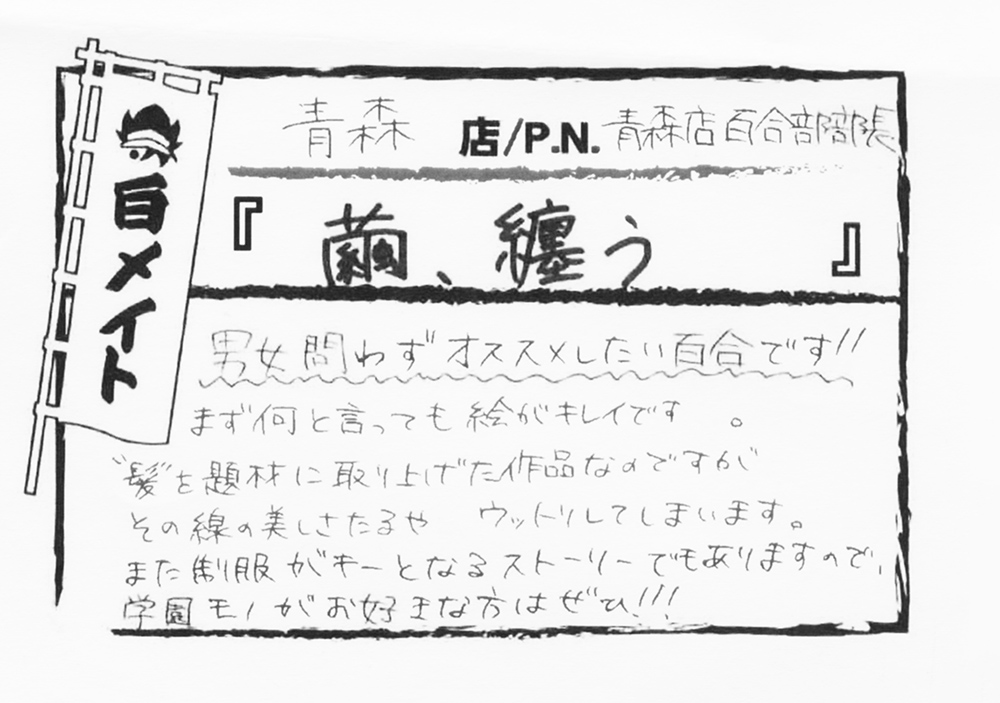 目メイト
青森 店/P.N. 青森店百合部部長
『繭、纏う』
男女問わずオススメしたい百合です!!
まず何と言っても絵がキレイです 。
"髪"を題材に取り上げた作品なのですが
その線の美しさたるや ウットリしてしまいます。
また制服がキーとなるストーリーでもありますので、
学園モノがお好きな方はぜひ!!!